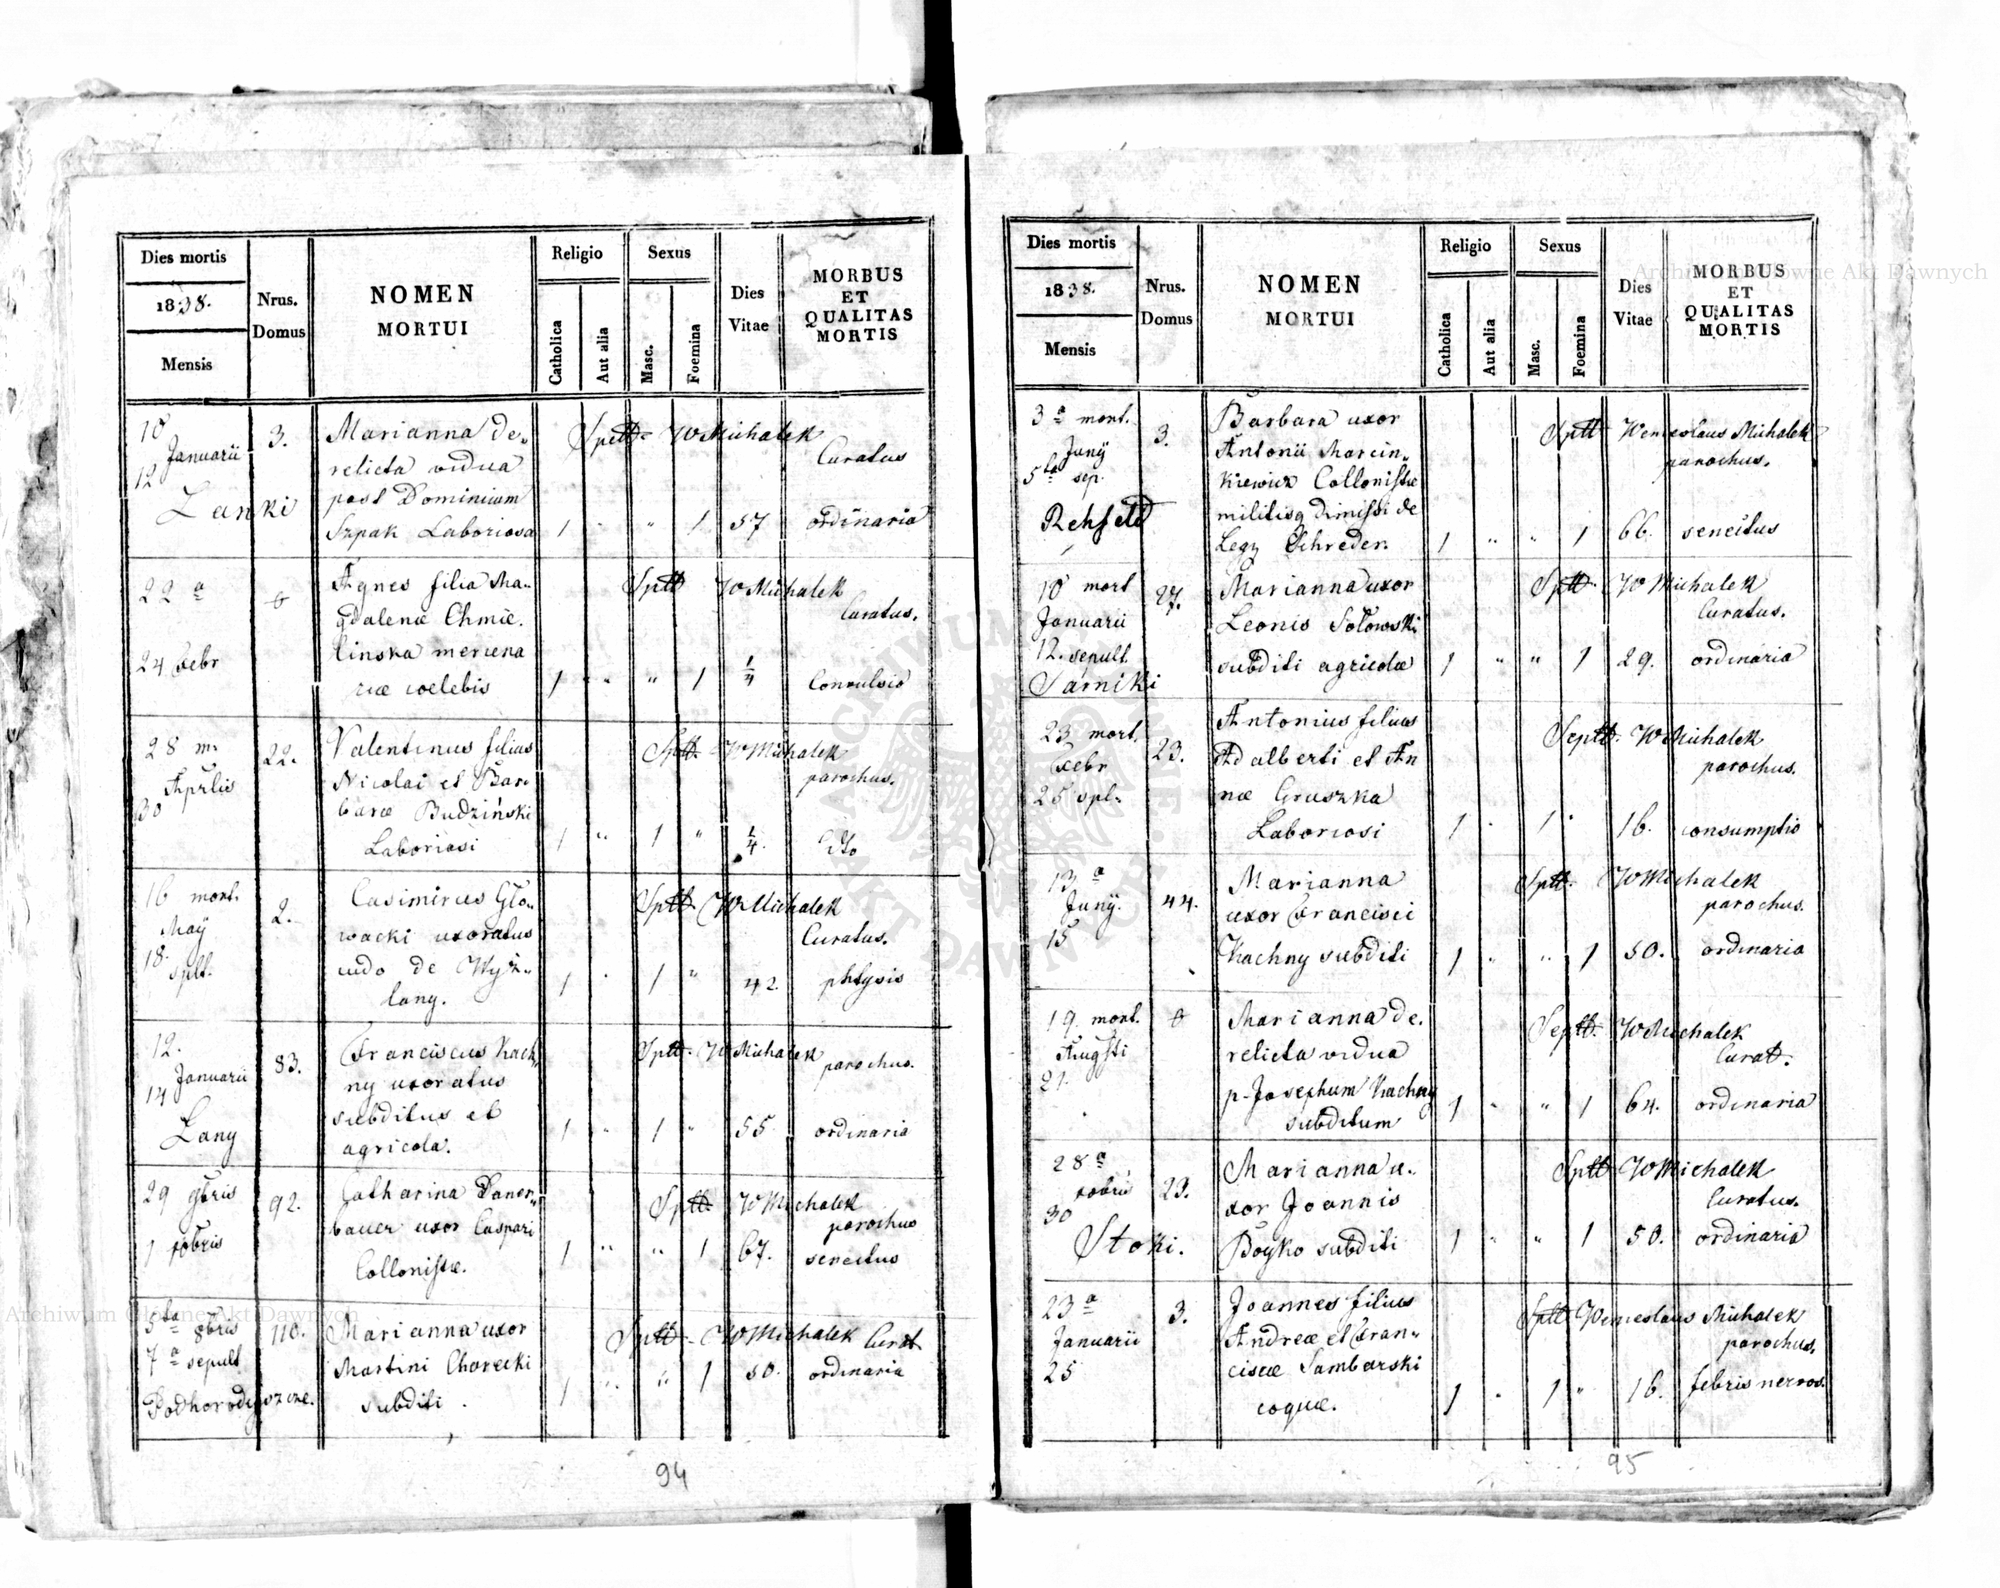 Dies mortis
1838.
Mensis
Nrus.
Domus
NOMEN
MORTUI
Religio
Catholica
Aut alia
Sexus
Masc.
Foemina
Dies
Vitae
MORBUS
ET
QUALITAS
MORTIS
10
Januarii
12
Lanki
3.
Marianna de„
relicta vidua
post Dominium
Szpak Laboriosa
Sptt. W Michalek
Curatus
1 " " 1 57 ordinaria
22 a
24 Febr
Agnes filia Ma„
gdalenæ Chmie.
linska mercena
riæ coelebis
Sptt W Michalek
Curatus.
1 " " 1 Convulsio
28 m.
Aprlis
30
22.
Valentinus filius
Nicolai et Bar
baræ Budziński
Laboriosi
Sptt. W Michalek
parochus.
1 " 1 " 1/4. dto
16 mort.
May
18.
splt.
2.
Casimirus Gło„
wacki uxoratus
de
lany.
Sptt. W Michalek
Curatus.
1 " 1 " 42. phtysis
12.
Januarii
14
Lany
83.
Franciscus Kach„
ny uxoratus
subditus et
agricola.
Sptt. W Michalek
parochus.
1 " 1 " 55 ordinaria
29 9bris
1 xbris
92.
Catharina
bauer uxor Caspari
Collonistæ.
Sptt. W Michalek
parochus
1 " " 1 67. senectus
5ta 8bris
7a sepult
Podhorodyszcze.
110.
Marianna uxor
Martini Chorecki
subditi.
Sptt. W Michalek Curat
1 " " 1 50. ordinaria
94
Dies mortis
1838.
Mensis
Nrus.
Domus
NOMEN
MORTUI
Religio
Catholica
Aut alia
Sexus
Masc.
Foemina
Dies
Vitae
MORBUS
ET
QUALITAS
MORTIS
3a mort.
Juny
5ta sep.
Rehfeld
3.
Barbara uxor
Antonii Marcin„
kiewicz Collonistæ
militisq dimissi de
Legy Schreder.
Sptt Wenceslaus Michalek
parochus.
1 " " 1 66. senectus
10 mort
Januarii
12. sepult.
Sarniki
27.
Marianna uxor
Leonis Sołowski
subditi agricolæ
Sptt. W Michalek
Curatus.
1 " " 1 29. ordinaria
23 mort.
Febr
25 spl.
23.
Antonius filius
Adalberti et An
næ Gruszka
Laboriosi
Septt. W Michalek
parochus.
1 " 1 " 16. consumptio
13 a
Juny.
15
44.
Marianna
uxor Francisci
Kachny subditi
Sptt. W Michalek
parochus.
1 " " 1 50. ordinaria
19. mort.
Augsti
21.
Marianna de.
relicta vidua
p. Josephum Kachny
subditum
Septt. W Michalek
Curat.
1 " " 1 64. ordinaria
28 a
xobris
30
Stoki.
23.
Marianna u.
xor Joannis
Boyko subditi
Sptt W Michalek
Curatus.
1 " " 1 50. ordinaria
23 a
Januarii
25
3.
Joannes filius
Andreæ et Fran„
ciscæ Sambarski
coquæ.
Sptt Wenceslaus Michalek
parochus.
1 " 1 " 16. febris nervos.
95
Archiwum Główne Akt Dawnych
Archiwum Główne Akt Dawnych
ARCHIWUM GŁÓWNE AKT DAWNYCH